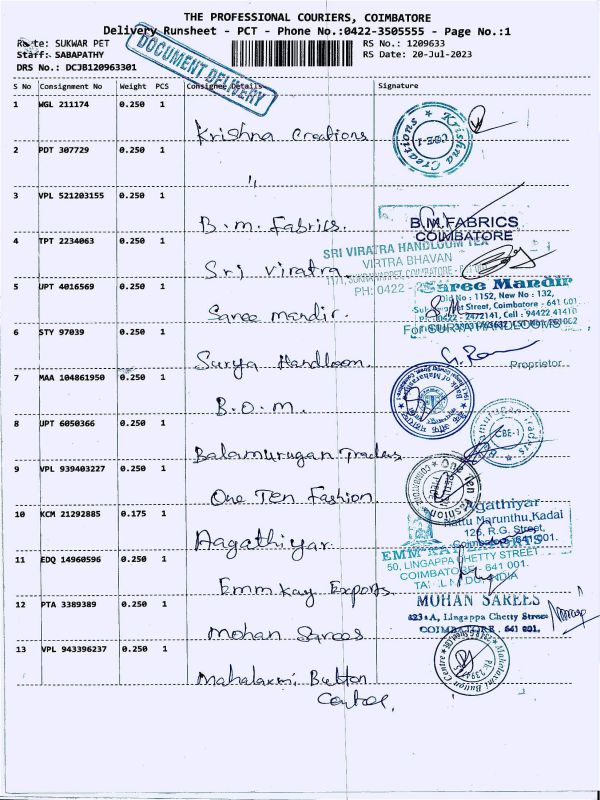 THE PROFESSIONAL COURIERS, COIMBATORE
Delivery Runsheet - PCT - Phone No.:0422-3505555 - Page No.:1
Route: SUKWAR PET
RS No.: 1209633
Staff: SABAPATHY
RS Date: 20-Jul-2023
DRS No.: DCJB120963301
DOCUMENT DELIVERY
S No Consignment No Weight PCS Consignee Details Signature
1 WGL 211174 0.250 1
Krishna Creations
Krishna Creations CBE-1
2 PDT 307729 0.250 1
"
3 VPL 521203155 0.250 1
B.M. Fabrics.
B.M.FABRICS
COIMBATORE
4 TPT 2234063 0.250 1
Sri Viratra.
SRI VIRATRA HANDLOOM TEX
VIRTRA BHAVAN
PH: 0422 -
5 UPT 4016569 0.250 1
Saree mandir.
Saree Mandir
Old No : 1152, New No : 132,
Street, Coimbatore - 641 001.
2472141, Cell : 94422 41410
6 STY 97039 0.250 1
Surya Handloom.
For SURYA HANDLOOMS
Proprietor
7 MAA 104861950 0.250 1
B.O.M.
Bank of Maharashtra
8 UPT 6050366 0.250 1
Balamurugan Traders
CBE-1
9 VPL 939403227 0.250 1
One Ten Fashion
One Ten Fashion
COIMBATORE
10 KCM 21292885 0.175 1
Aagathiyar
Agathiyar
Nattu Marunthu Kadai
126, R.G. Street,
Coimbatore - 641 001.
11 EDQ 14960596 0.250 1
Emm Kay Exports
EMM KAY EXPORTS
50, LINGAPPA CHETTY STREET
COIMBATORE - 641 001.
TAMIL NADU, INDIA
12 PTA 3389389 0.250 1
Mohan Sarees
MOHAN SAREES
423-A, Lingappa Chetty Street
COIMBATORE - 641 001.
13 VPL 943396237 0.250 1
Mahalaxmi Button
Centre,
Mahalaxmi Button Centre